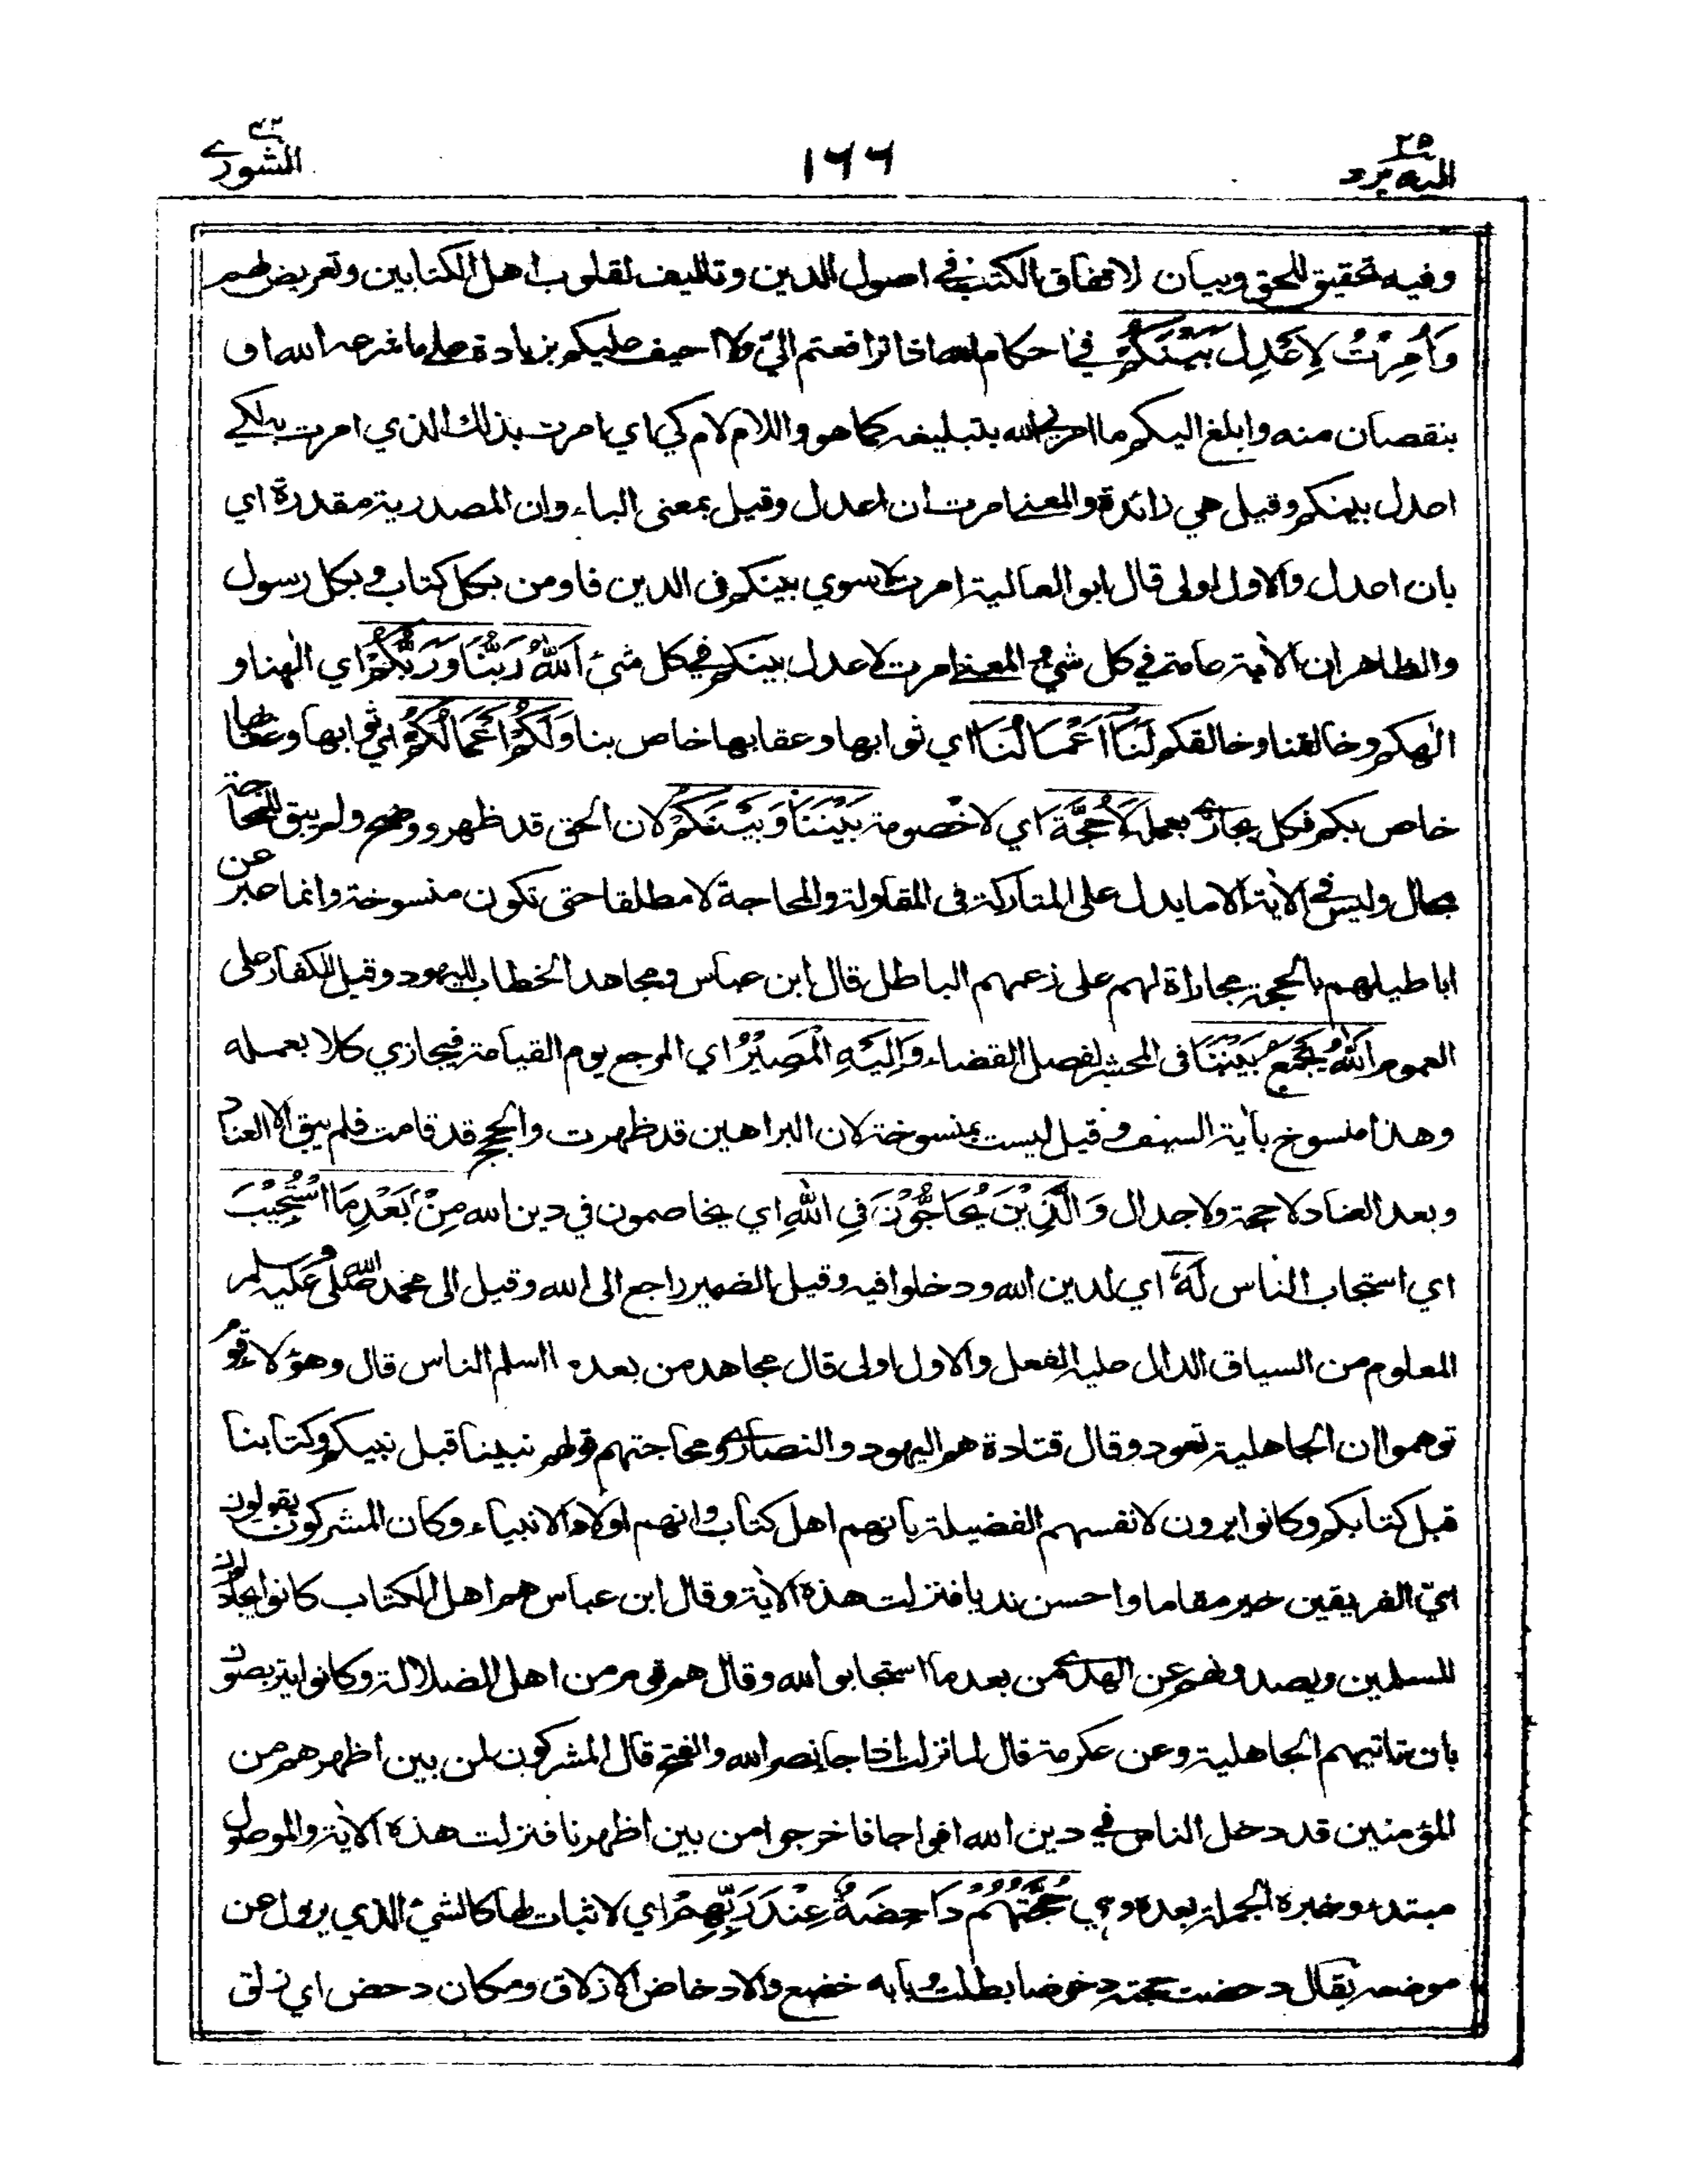 ٢٥
اليه يرد
١٦٦
٤٢
الشورے
وفيه تحقيق للحق وبيان لاتفاق الكتب في اصول الدين وتاليف لقلوب اهل الكتابين وتعريض لهم
وَأُمِرْتُ لِأَعْدِلَ بَيْنَكُمُ في احكام الله اذا ترافعتم اليّ ولا احيف عليكم بزيادة على ما شرعه الله او
بنقصان منه وابلغ اليكم ما امرني الله بتبليغه كما هو واللام لام كي اي امرت بذلك الذي امرت به لكي
اعدل بينكم وقيل هي زائدة والمعنى امرت ان اعدل وقيل بمعنى الباء وان المصدرية مقدرة اي
بان اعدل والاول اولى قال ابو العالية امرت لاسوي بينكم في الدين فاومن بكل كتاب وبكل رسول
والظاهر ان الآية عامة في كل شيء والمعنى امرت لاعدل بينكم في كل شيء اَللّٰهُ رَبُّنَا وَرَبُّكُمْ اي الهنا و
الهكم وخالقنا وخالقكم لَنَا أَعْمَالُنَا اي ثوابها وعقابها خاص بنا وَلَكُمْ أَعْمَالُكُمْ اي ثوابها وعقابها
خاص بكم فكل يجازى بعمله لَا حُجَّةَ اي لا خصومة بَيْنَنَا وَبَيْنَكُمْ لان الحق قد ظهر ووضح ولم يبق للمحاجة
مجال وليس في الآية الا ما يدل على المتاركة في المقاولة والمحاجة لا مطلقا حتى تكون منسوخة وانما عبر عن
اباطيلهم بالحجة مجاراة لهم على زعمهم الباطل قال ابن عباس ومجاهد الخطاب لليهود وقيل للكفار على
العموم اَللّٰهُ يَجْمَعُ بَيْنَنَا في المحشر لفصل القضاء وَإِلَيْهِ الْمَصِيْرُ اي المرجع يوم القيامة فيجازي كلا بعمله
وهذا منسوخ بآية السيف وقيل ليست بمنسوخة لان البراهين قد ظهرت والحجج قد قامت فلم يبق الا العناد
وبعد العناد لا حجة ولا جدال وَالَّذِيْنَ يُحَاجُّوْنَ فِي اللّٰهِ اي يخاصمون في دين الله مِنْ بَعْدِ مَا اسْتُجِيْبَ
اي استجاب الناس لَهٗ اي لدين الله ودخلوا فيه وقيل الضمير راجع الى الله وقيل الى محمد صلى الله عليه وسلم
المعلوم من السياق الدال عليه الفعل والاول اولى قال مجاهد من بعد ما اسلم الناس قال وهؤلاء قوم
توهموا ان الجاهلية تعود وقال قتادة هم اليهود والنصارى ومحاجتهم قولهم نبينا قبل نبيكم وكتابنا
قبل كتابكم وكانوا يرون لانفسهم الفضيلة بانهم اهل كتاب وانهم اولاد الانبياء وكان المشركون يقولون
ايّ الفريقين خير مقاما واحسن نديا فنزلت هذه الآية وقال ابن عباس هم اهل الكتاب كانوا يجادلون
للمسلمين ويصدونهم عن الهدى من بعد ما استجابوا لله وقال هم قوم من اهل الضلالة وكانوا يتربصون
بان تاتيهم الجاهلية وعن عكرمة قال لما نزلت اذا جاء نصر الله والفتح قال المشركون لمن بين اظهرهم من
المؤمنين قد دخل الناس في دين الله افواجا فاخرجوا من بين اظهرنا فنزلت هذه الآية والموصول
مبتدء وخبره الجملة بعده وهي حُجَّتُهُمْ دَاحِضَةٌ عِنْدَ رَبِّهِمْ اي لا ثبات لها كالشيء الذي يزول عن
موضعه يقال دحضت حجته دحوضا بطلت وبابه خضع والادحاض الازلاق ومكان دحض اي زلق